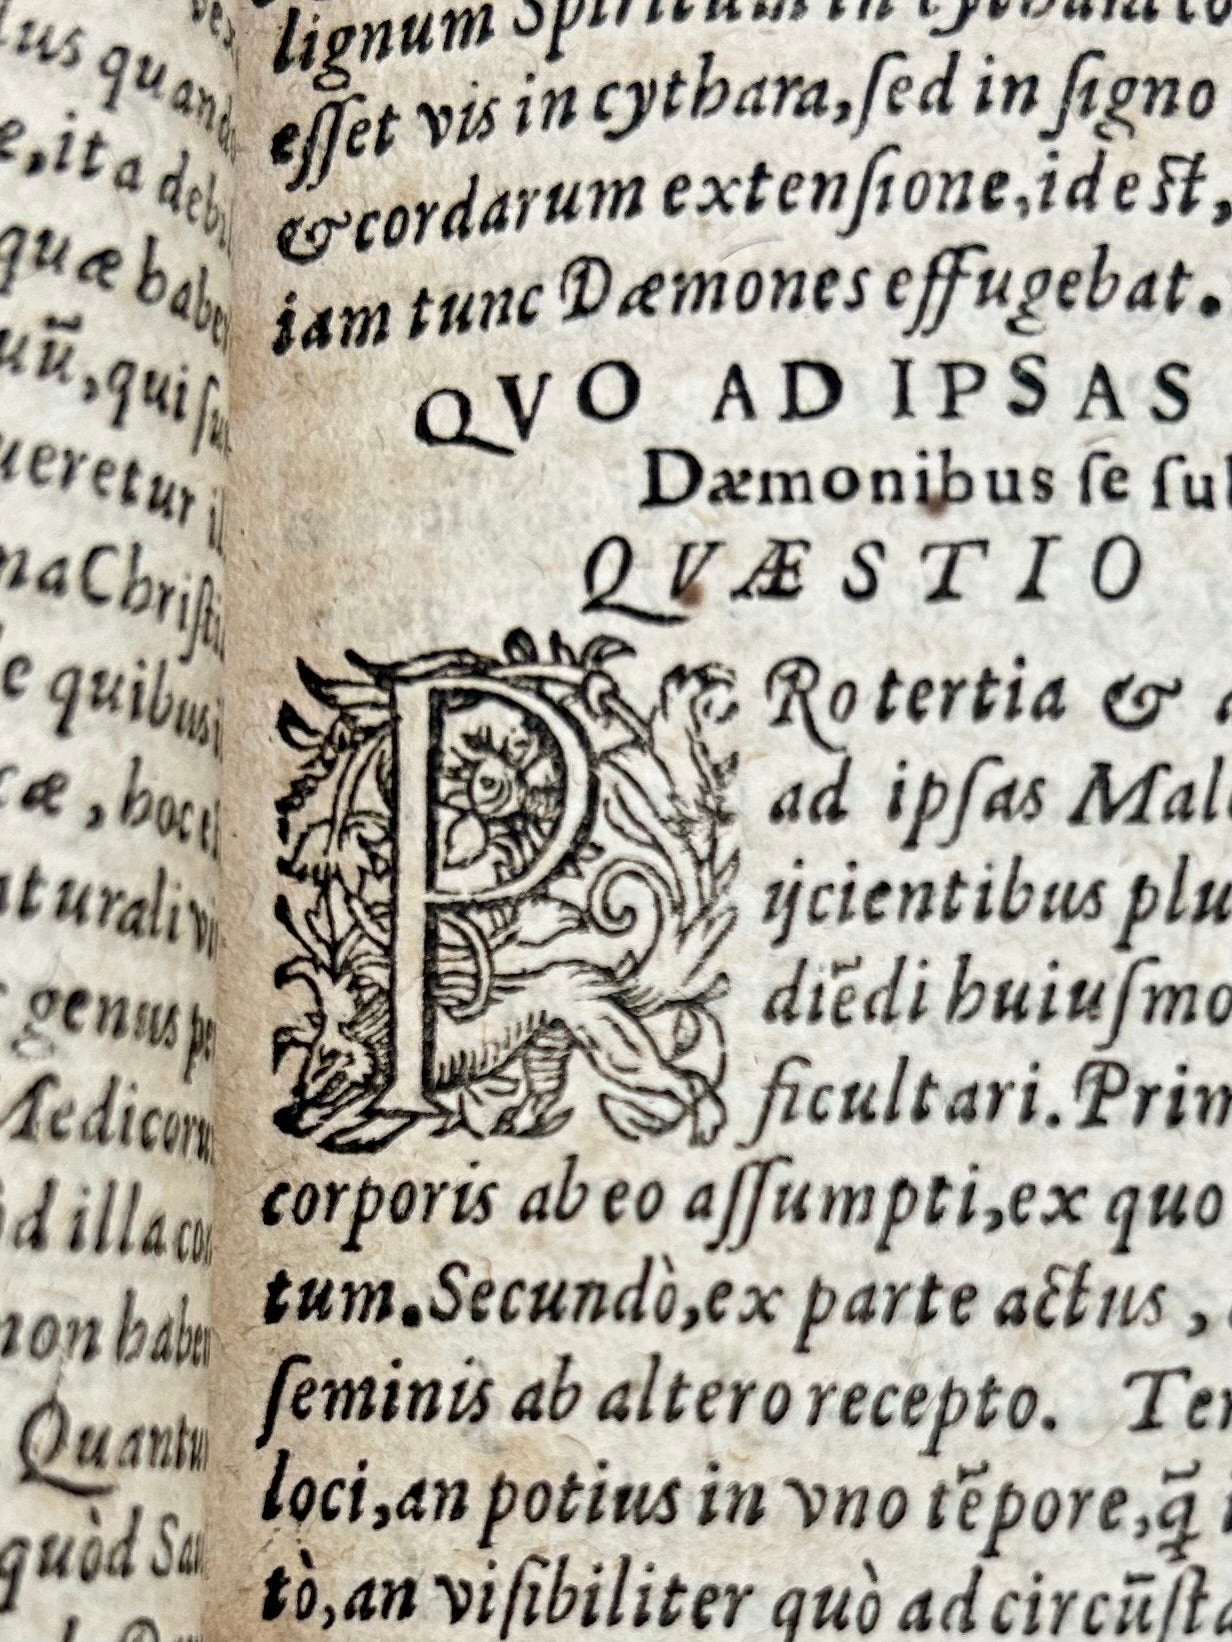 lus quan
e, ita deb
quæ habe
uū, qui ſu
ueretur
na Chriſti
e quibus
cæ, hoc
aturali
genus
Medicoru
d illa co
non haber
Quantu
quòd San
lignum Spiritum in cythara
eſſet vis in cythara, ſed in ſigno
& cordarum extenſione, id eſt,
iam tunc Dæmones effugebat.
QVO AD IPSAS
Dæmonibus ſe ſub
QVÆSTIO
PRo tertia &
ad ipſas Mal
ijcientibus plu
diēdi huiuſmo
ficultari. Prim
corporis ab eo aſſumpti, ex quo
tum. Secundò, ex parte actus,
ſeminis ab altero recepto. Ter
loci, an potius in vno tēpore, q̄
tò, an viſibiliter quò ad circūſta